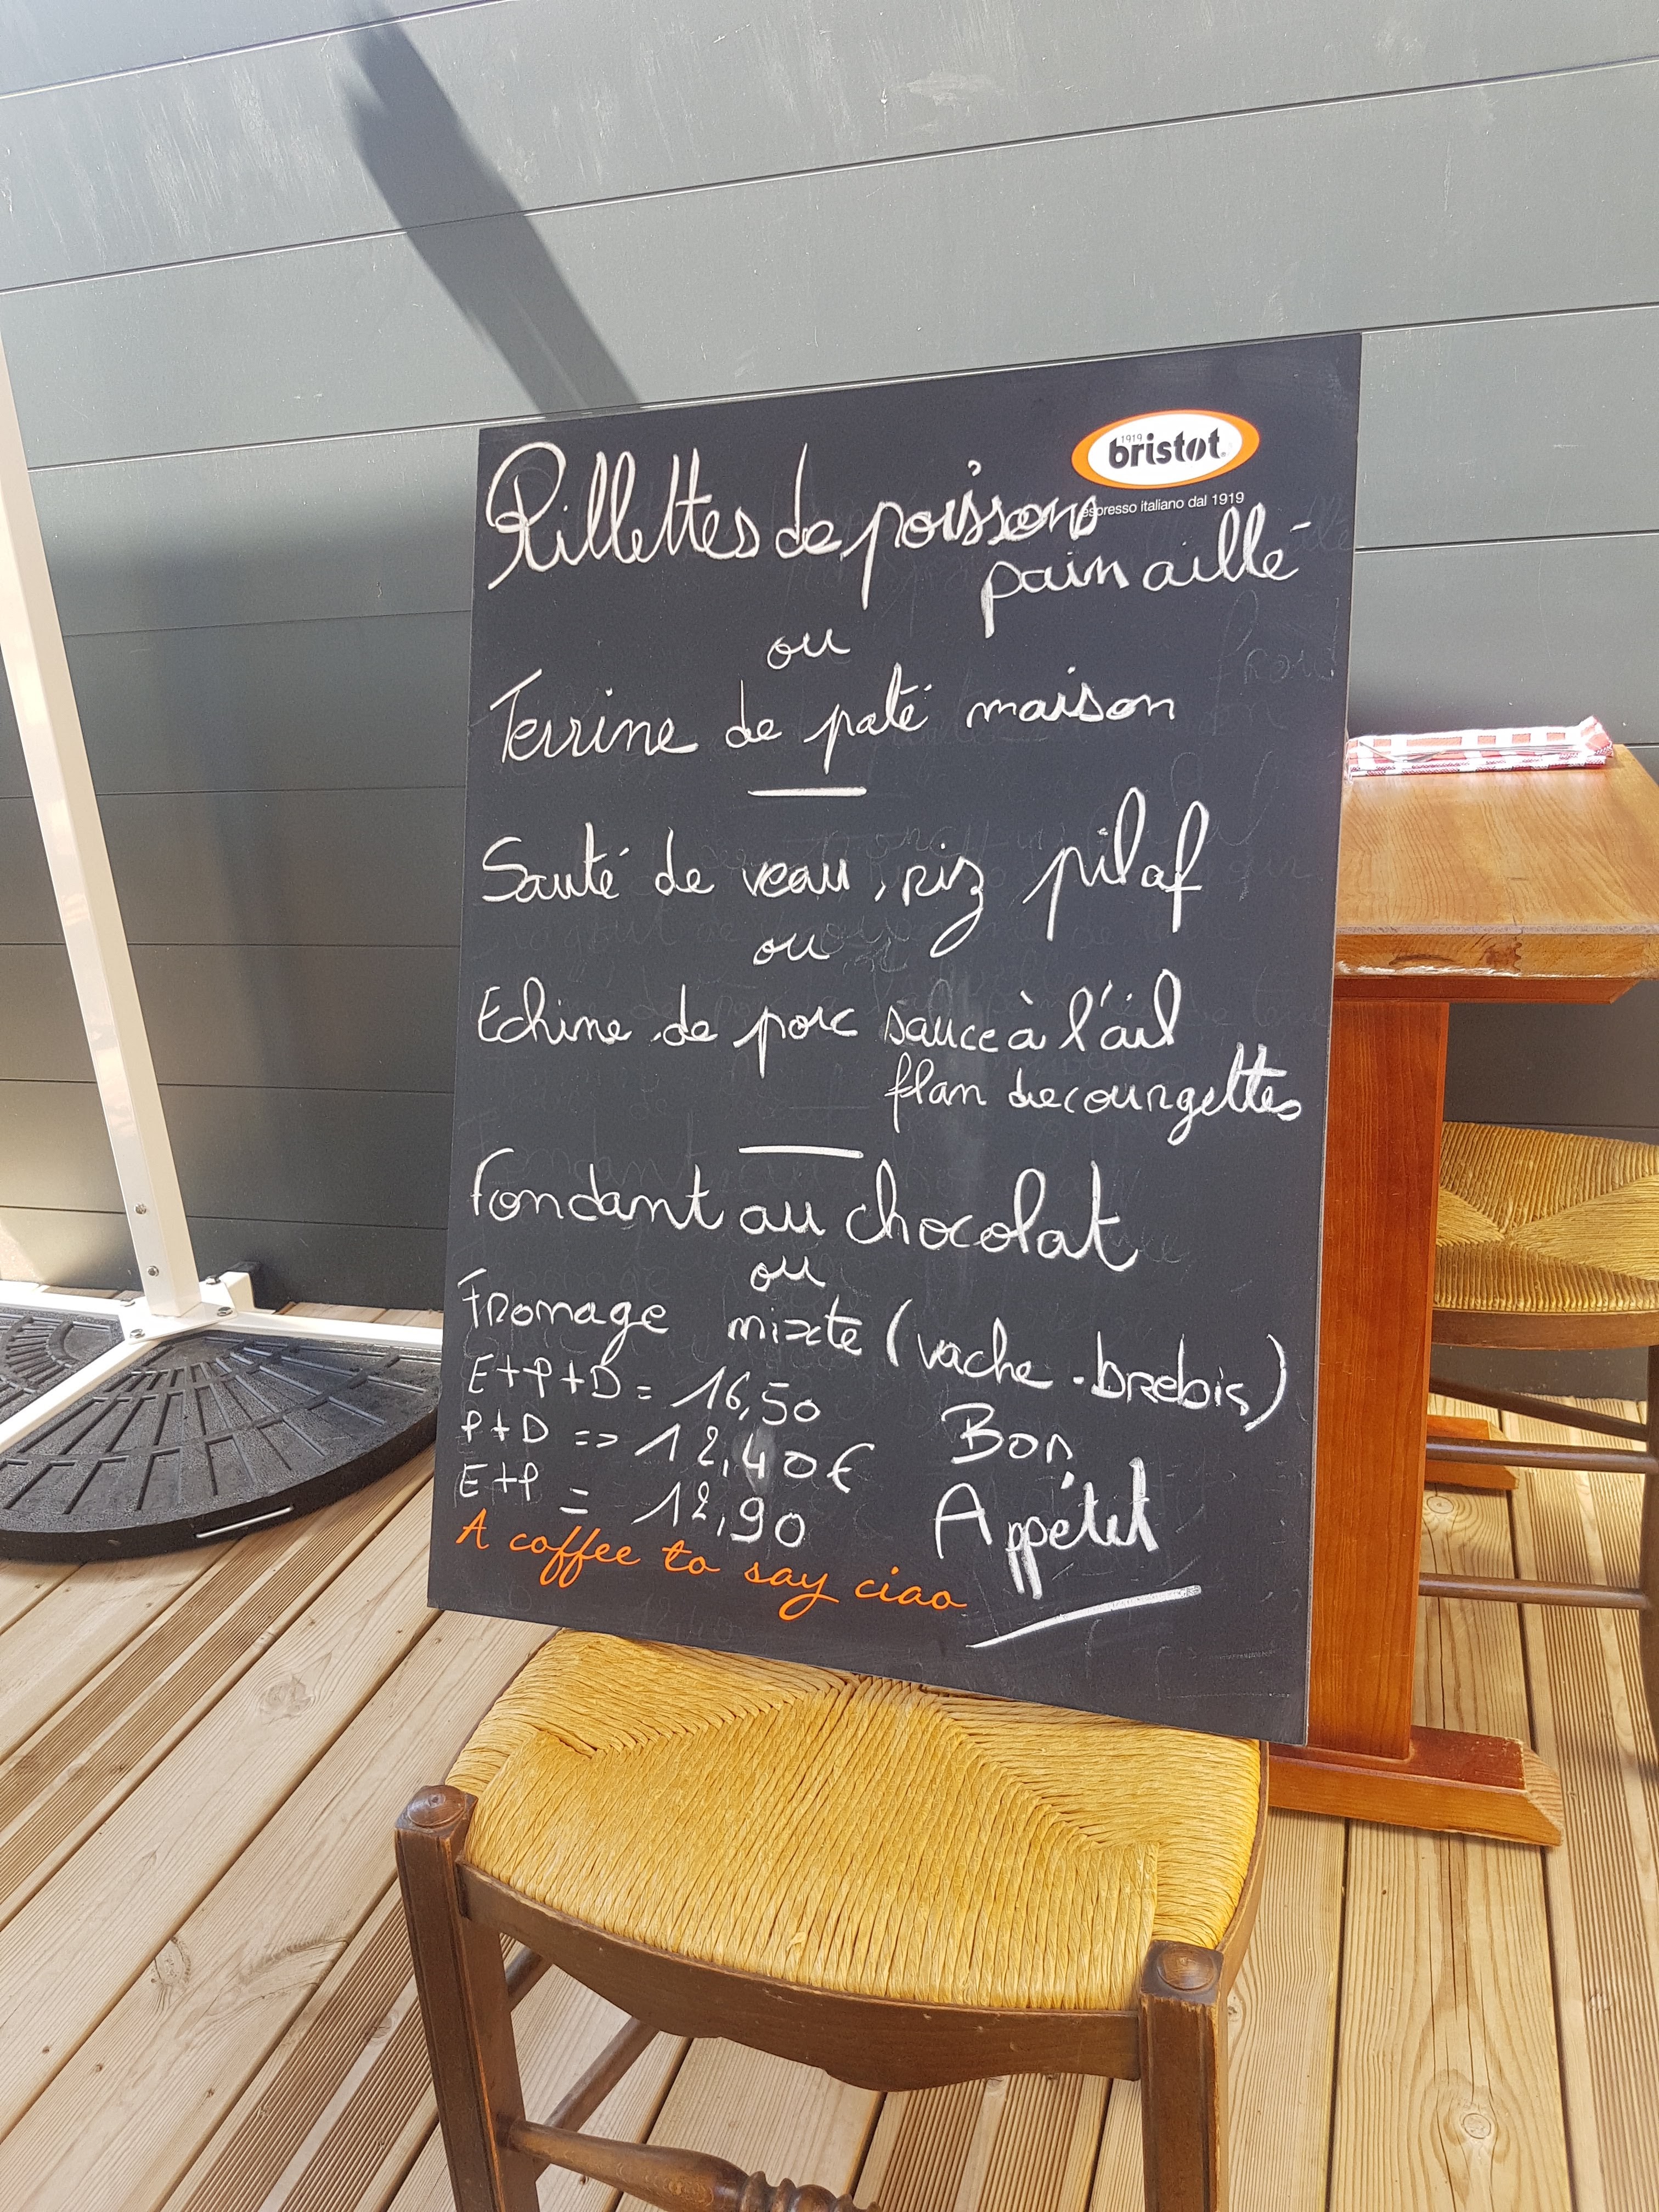 1919
bristot.
espresso italiano dal 1919
Rillettes de poissons
pain aillé
ou
Terrine de paté maison
Sauté de veau, riz pilaf
ou
Echine de porc sauce à l'ail
flan de courgettes
Fondant au chocolat
ou
Fromage mixte (vache - brebis)
E+P+D = 16,50
P+D => 12,40€
E+P = 12,90
Bon
Appétit
A coffee to say ciao